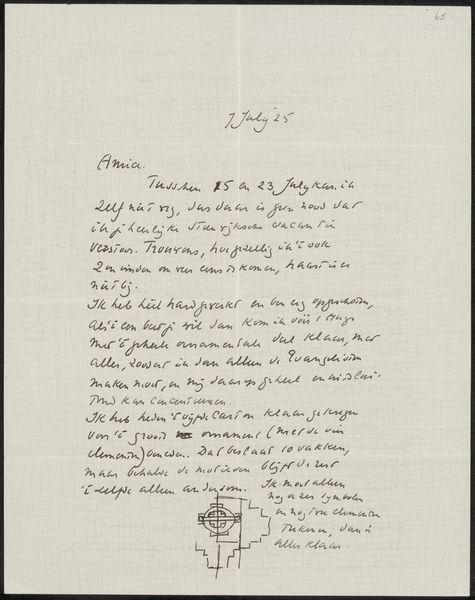 65
7 July 25
Amia.
Tusschen 15 en 23 July kan ik
zelf niet weg, dus daar is geen nood dat
ik je heerlijke Steenwijksche vacantie
verstoor. Trouwens, hoe gezellig ik 't ook
zou vinden om eens te komen, haast is er
niet bij.
Ik heb heel hard gewerkt en ben erg opgeschoten,
als 't een beetje wil dan kom ik vóór 1 Aug
met 't geheele ornamentale deel klaar, met
alles, zoodat ik dan alleen de Evangelisten
maken moet, en mij daarop geheel en
kan concentreeren.
Ik heb heden 't vijfde carton klaar gekregen
van 't groote ornament (met de vier
elementen) Dat bestaat 10 vakken,
maar behalve de motieven blijft de rest
't zelfde alleen andersom. Ik moet alleen
nog de symbolen
en nog twee elementen
teekenen, dan is
alles klaar.